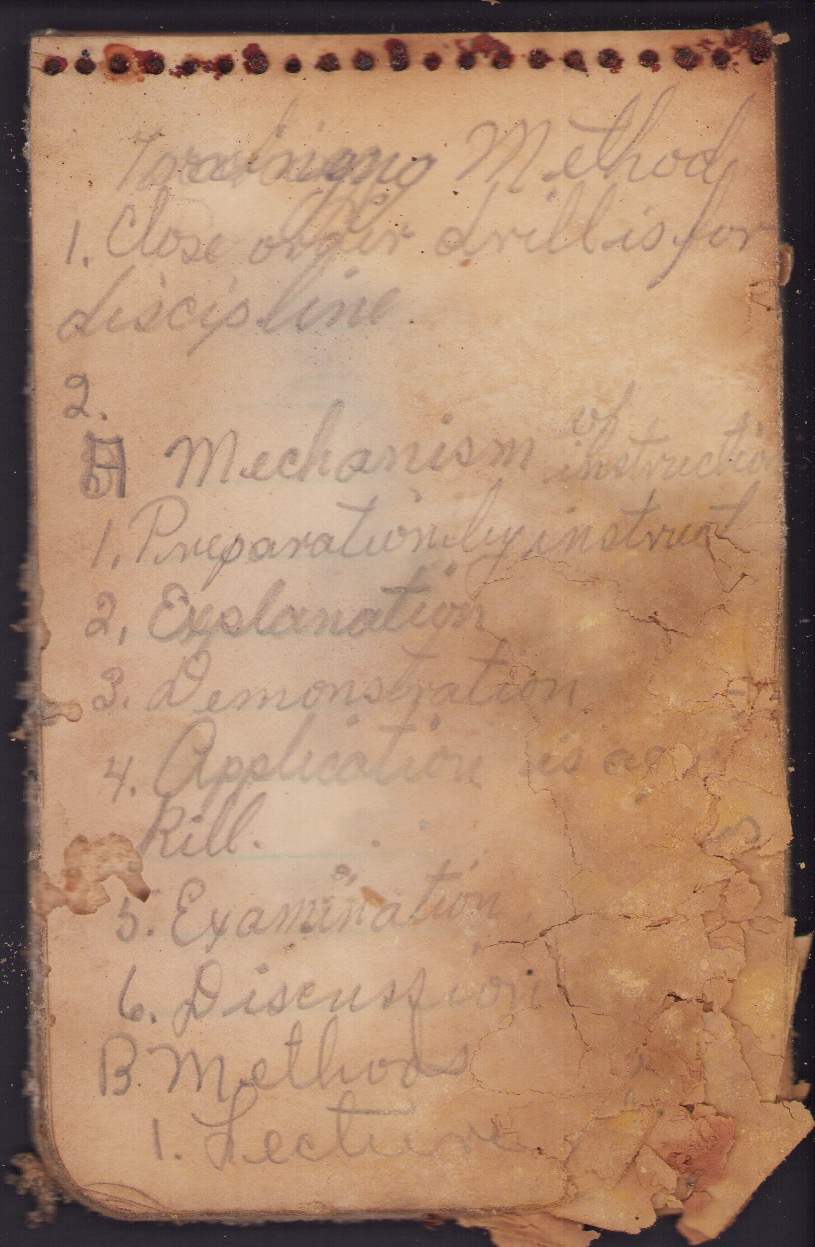 Training Method
1. Close order drill is for
discipline.
2.
A Mechanism of instructio
1. Preparation by instruct
2, Explanation
3. Demonstration
4. Application is
Kill.
5. Examination
6. Discussion
B. Methods
1. Lecture